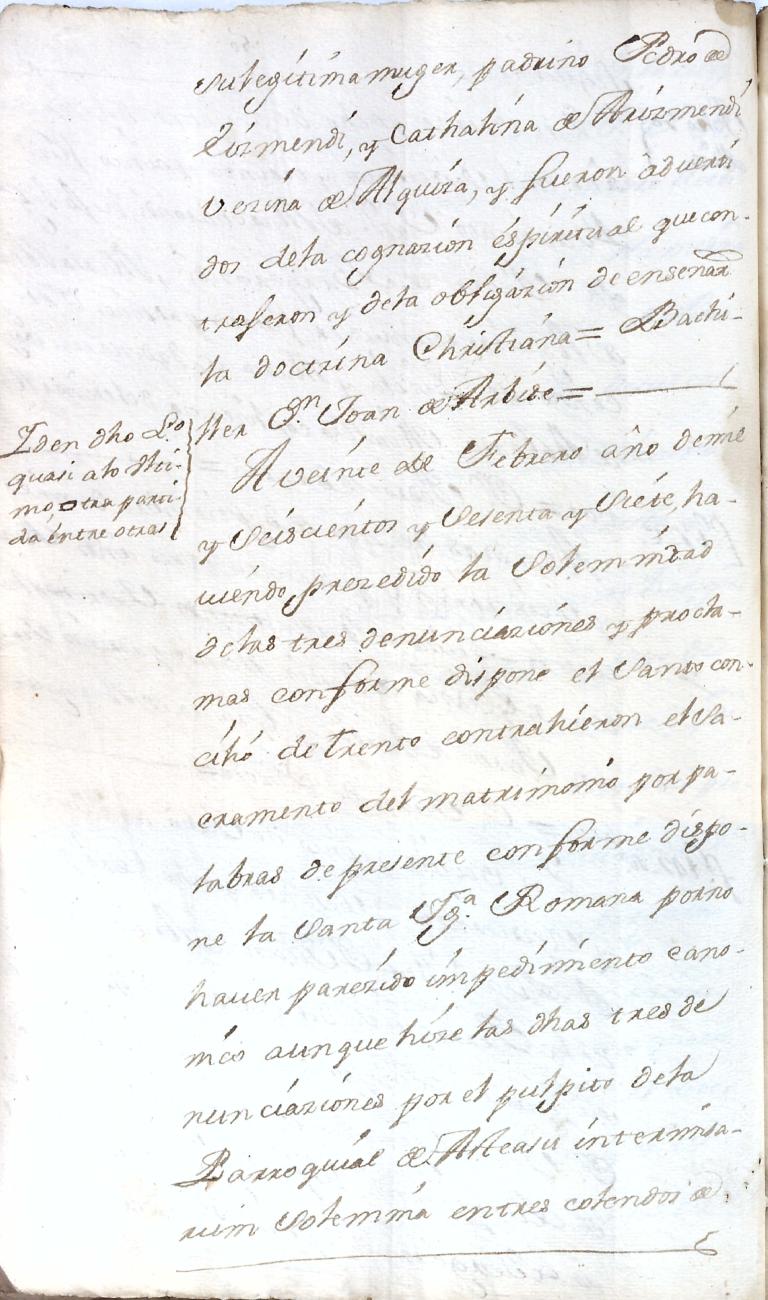 su legítima muger, padrino Pedro de
Lizmendi, y Cathalina de Arizmendi
vezina de Alquiza, y fueron adverti
dos dela cognazion éspiritual que con-
trageron y dela obligazion de enseñar
la doctrina Christiana = Bachi-
ller D.n Joan de Arbide =
Yden dho L.o
quasi alo Ulti-
mo, otra parti-
da éntre otras
A veinte de Febrero año de mil
y Seiscientos y Sesenta y Siete, ha-
viendo prezedido la Solemnidad
delas tres denunciaziones y procla-
mas conforme dispone el Santo con-
cilio de Trento contrahieron el Sa-
cramento del matrimonio por pa-
labras de presente conforme dispo-
ne la Santa Yg.a Romana por no
haver parezido impedimiento cano-
nico aunque hize las dhas tres de
nunciaziones por el pulpito dela
Parroquial de Asteasu inter missa-
rum Solemnia en tres colendos de